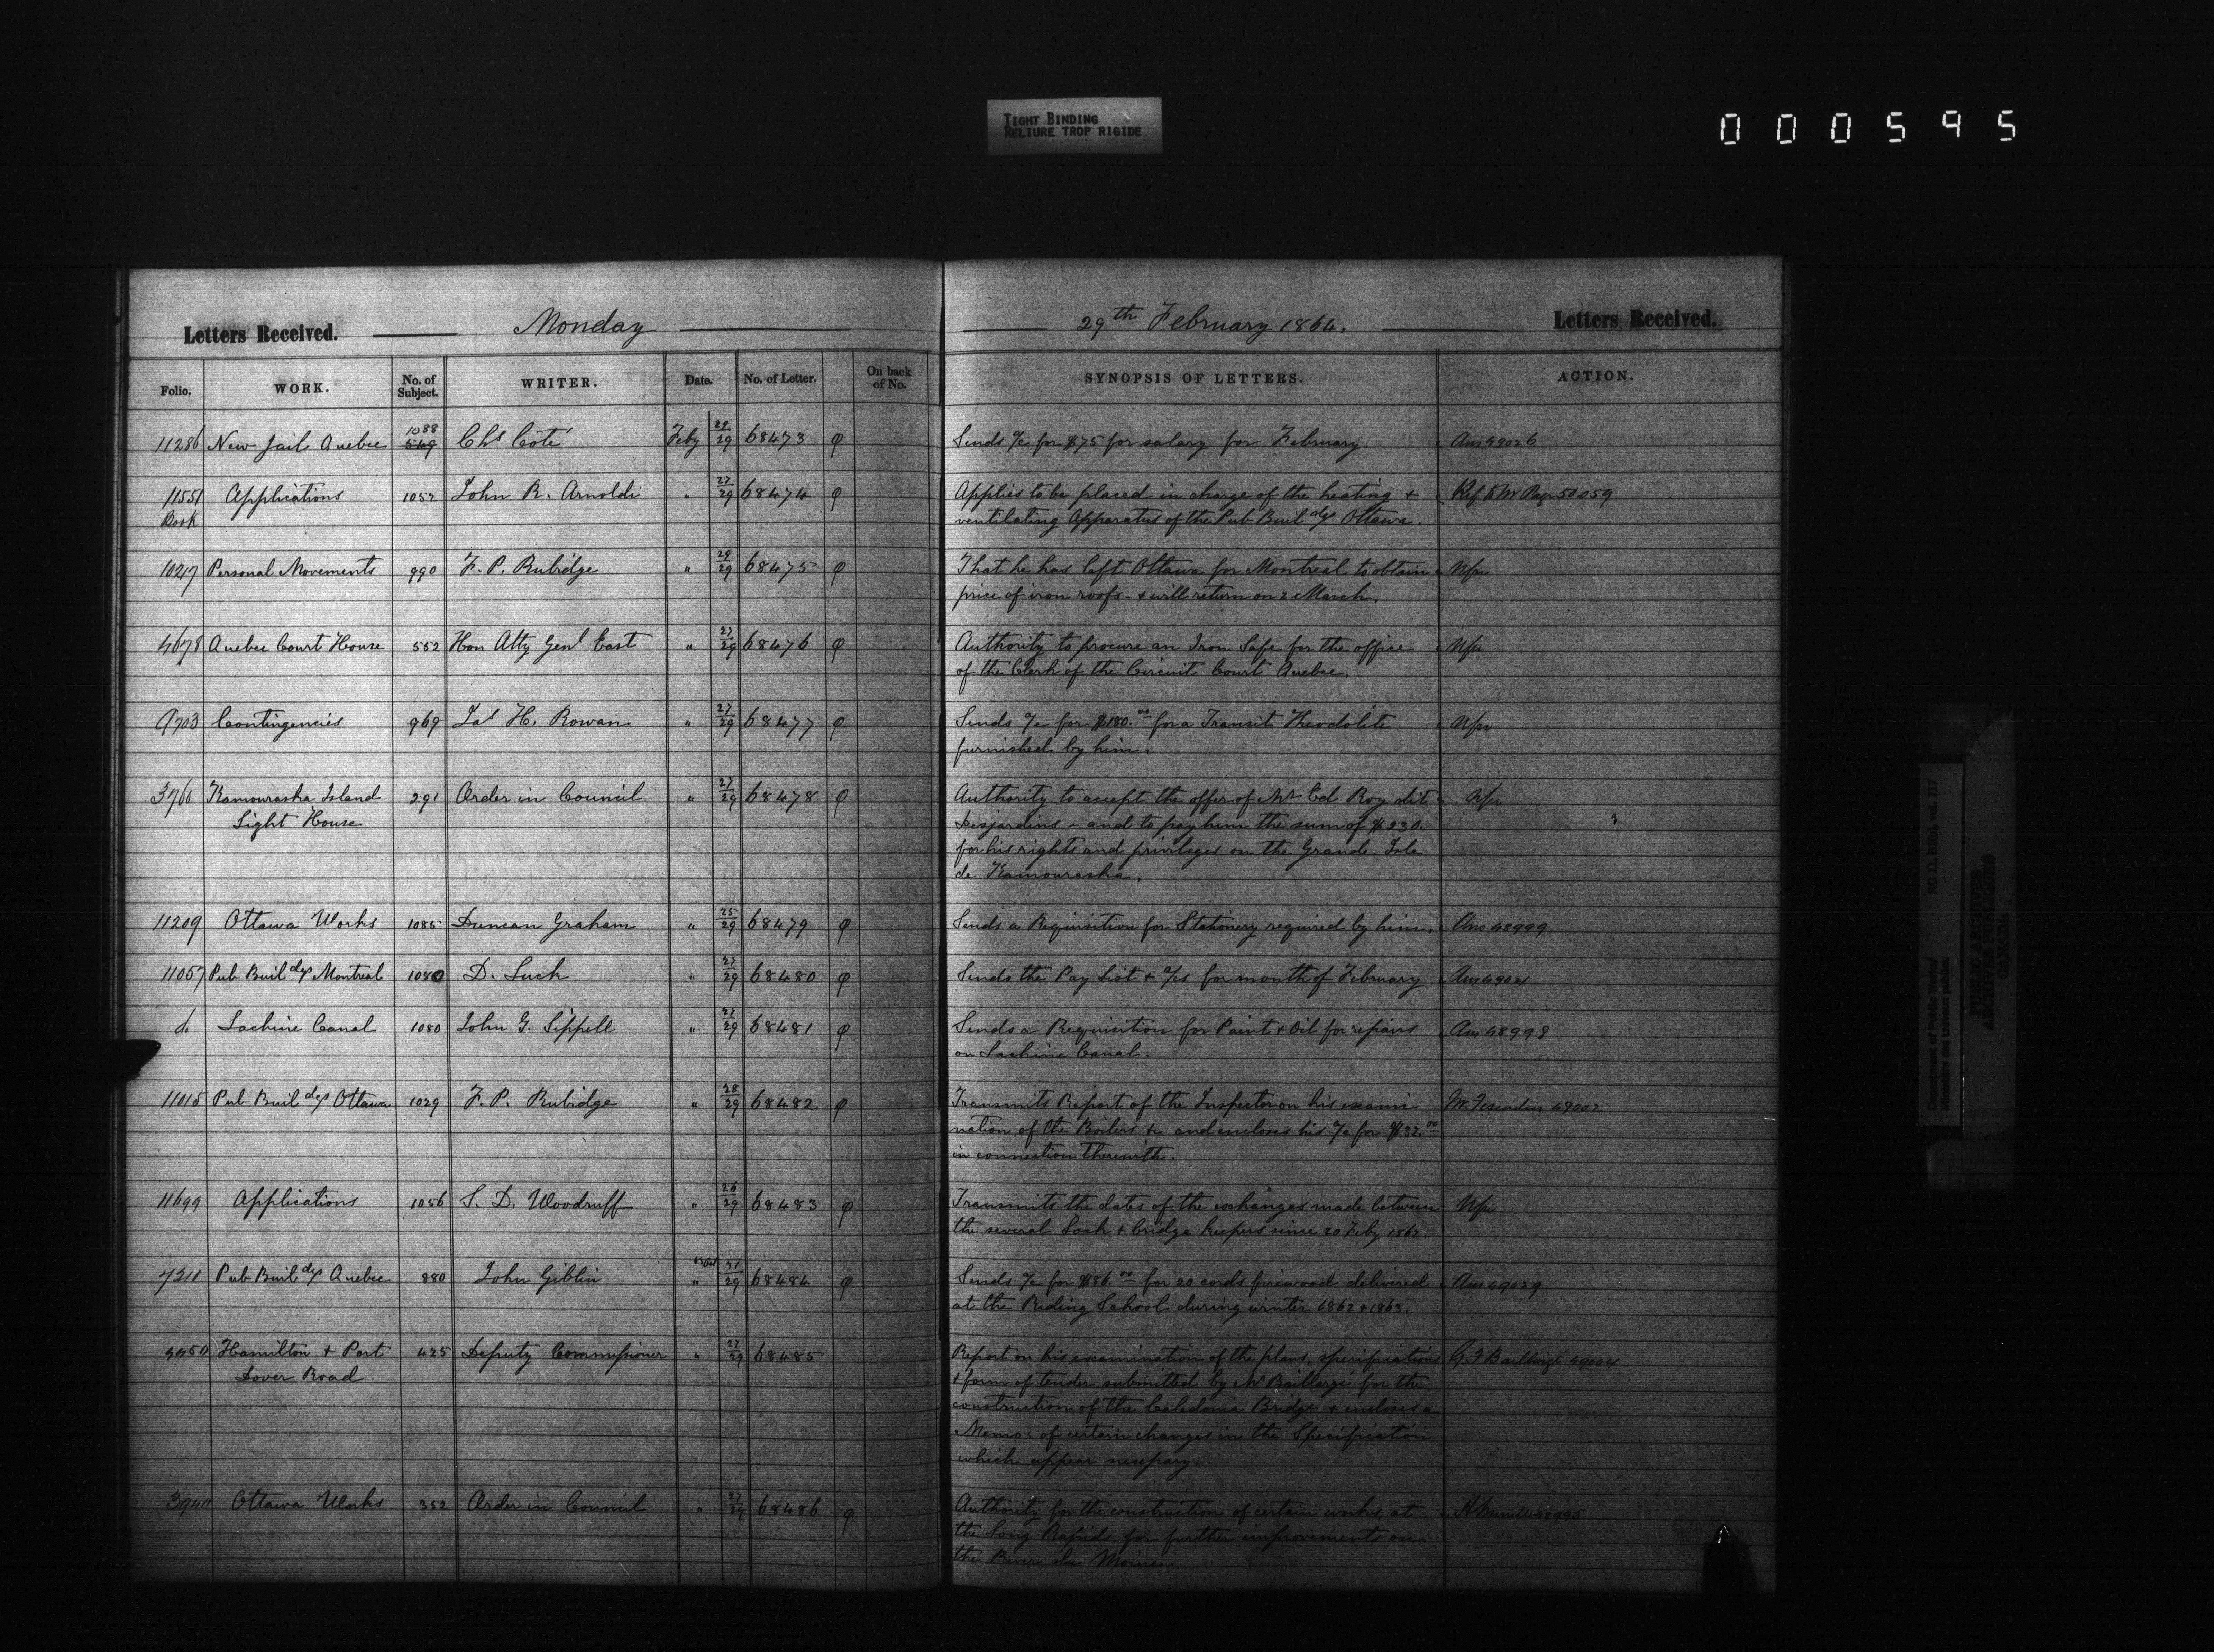 TIGHT BINDING
RELIURE TROP RIGIDE
000595
Letters Received. Monday 29th February 1864. Letters Received.
Folio. WORK. No. of Subject. WRITER. Date. No. of Letter. On back of No. SYNOPSIS OF LETTERS. ACTION.
11286 New Jail Quebec 1088 549 Chs Côté Feby 29/29 68473 φ Sends a/c for $75 for salary for February Ans 49026
11551 Applications 1052 John R. Arnoldi " 27/29 68474 φ Applies to be placed in charge of the heating + Ref to Mr Page 50059
Book ventilating Apparatus of the Pub Buildgs Ottawa.
10217 Personal Movements 990 F. P. Rubidge " 29/29 68475 φ That he has left Ottawa for Montreal to obtain
price of iron roofs - + will return on 2 March.
4678 Quebec Court House 552 Hon Atty Genl East " 27/29 68476 φ Authority to procure an Iron Safe for the office
of the Clerk of the Circuit Court Quebec.
9703 Contingencies 969 Jas H. Rowan " 27/29 68477 φ Sends a/c for $180.00 for a Transit Theodolite
furnished by him.
3766 Kamouraska Island 291 Order in Council " 27/29 68478 φ Authority to accept the offer of Mr Ed Roy dit
Light House Desjardins - and to pay him the sum of $230.
for his rights and privileges on the Grande Isle
de Kamouraska.
11209 Ottawa Works 1085 Duncan Graham " 25/29 68479 φ Sends a Requisition for Stationery required by him. Ans 48999
11057 Pub Buildgs Montreal 1080 D. Luck " 27/29 68480 φ Sends the Pay List + a/cs for month of February Ans 49021
do Lachine Canal 1080 John G. Sippell " 27/29 68481 φ Sends a Requisition for Paint + Oil for repairs Ans 48998
on Lachine Canal.
11015 Pub Buildgs Ottawa 1029 F. P. Rubidge " 28/29 68482 φ Transmits Report of the Inspector on his exami 49002
nation of the Boilers &c and encloses his a/c for $32.00
in connection therewith.
11699 Applications 1056 S. D. Woodruff " 26/29 68483 φ Transmits the dates of the exchanges made between
the several Lock + bridge keepers since 20 Feby 1862.
7211 Pub Buildgs Quebec 880 John Giblin " 31/29 68484 φ Sends a/c for $86.00 for 20 cords firewood delivered Ans 49029
at the Riding School during winter 1862 + 1863.
4450 Hamilton + Port 425 Deputy Commissioner " 27/29 68485 Report on his examination of the plans, specifications G. F. Baillargé 49004
Dover Road + form of tender submitted by Mr Baillargé for the
construction of the Caledonia Bridge + encloses a
Memo: of certain changes in the Specification
which appear necessary.
3940 Ottawa Works 352 Order in Council " 27/29 68486 φ Authority for the construction of certain works, at H Merrill 48995
the Long Rapids, for further improvements on
the River du Moine.
Department of Public Works/ RG 11, B1(b), vol. 717
Ministère des travaux publics
PUBLIC ARCHIVES
ARCHIVES PUBLIQUES
CANADA